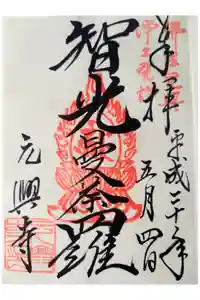 奉拝
平成三十年
五月四日
智光曼荼羅
元興寺